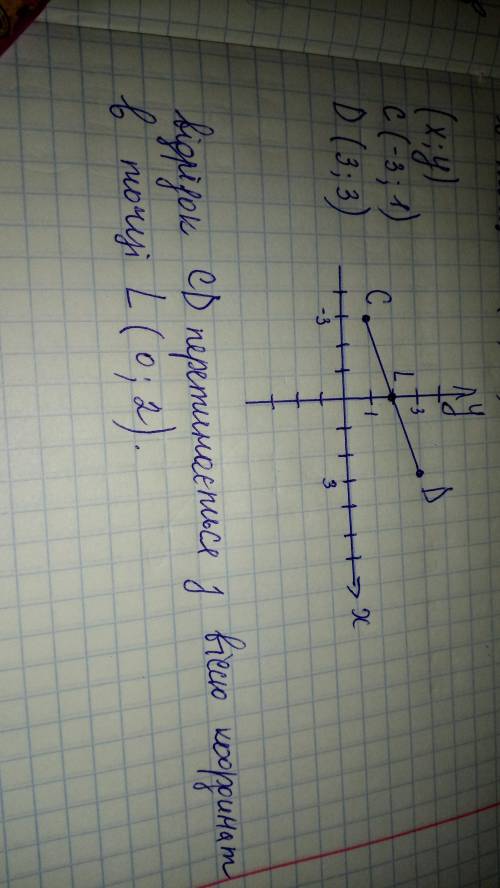 (x; y)
C (-3; 1)
D (3; 3)
y
3
D
L
C
1
-3
3
x
відрізок CD перетинається з віссю координат
в точці L (0; 2).